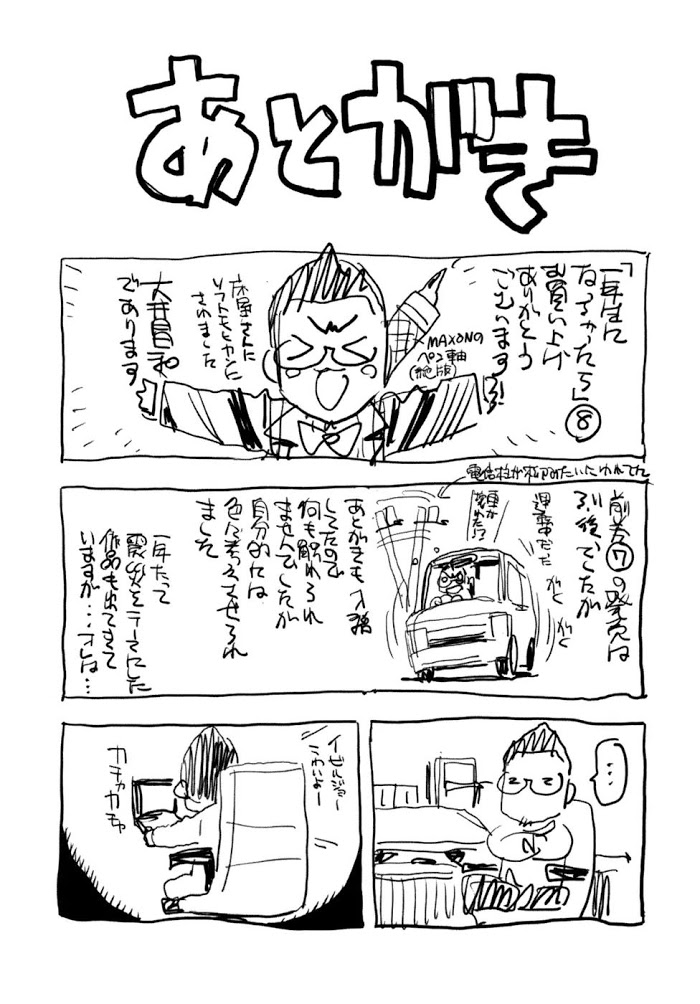 あとがき
「一年生に
なっちゃったら」⑧
お買い上げ
ありがとう
ございます!
MAXONの
ペン軸
(絶版)
床屋さんに
ソフトモヒカンに
されました
大井昌和
であります
前巻⑦の発売は
震災後でしたが
電信柱がムチみたいにゆれてた
運転中だった
車が
壊れた!?
がく
がく
あとがきも入稿
してたので
何も触れられ
ませんでしたが
自分的には
色々考えさせられ
ました
一年たって
震災をテーマにした
作品も出てきて
いますが…オレは…
…
イゼルジョー
こわいよー
カチャカチャ